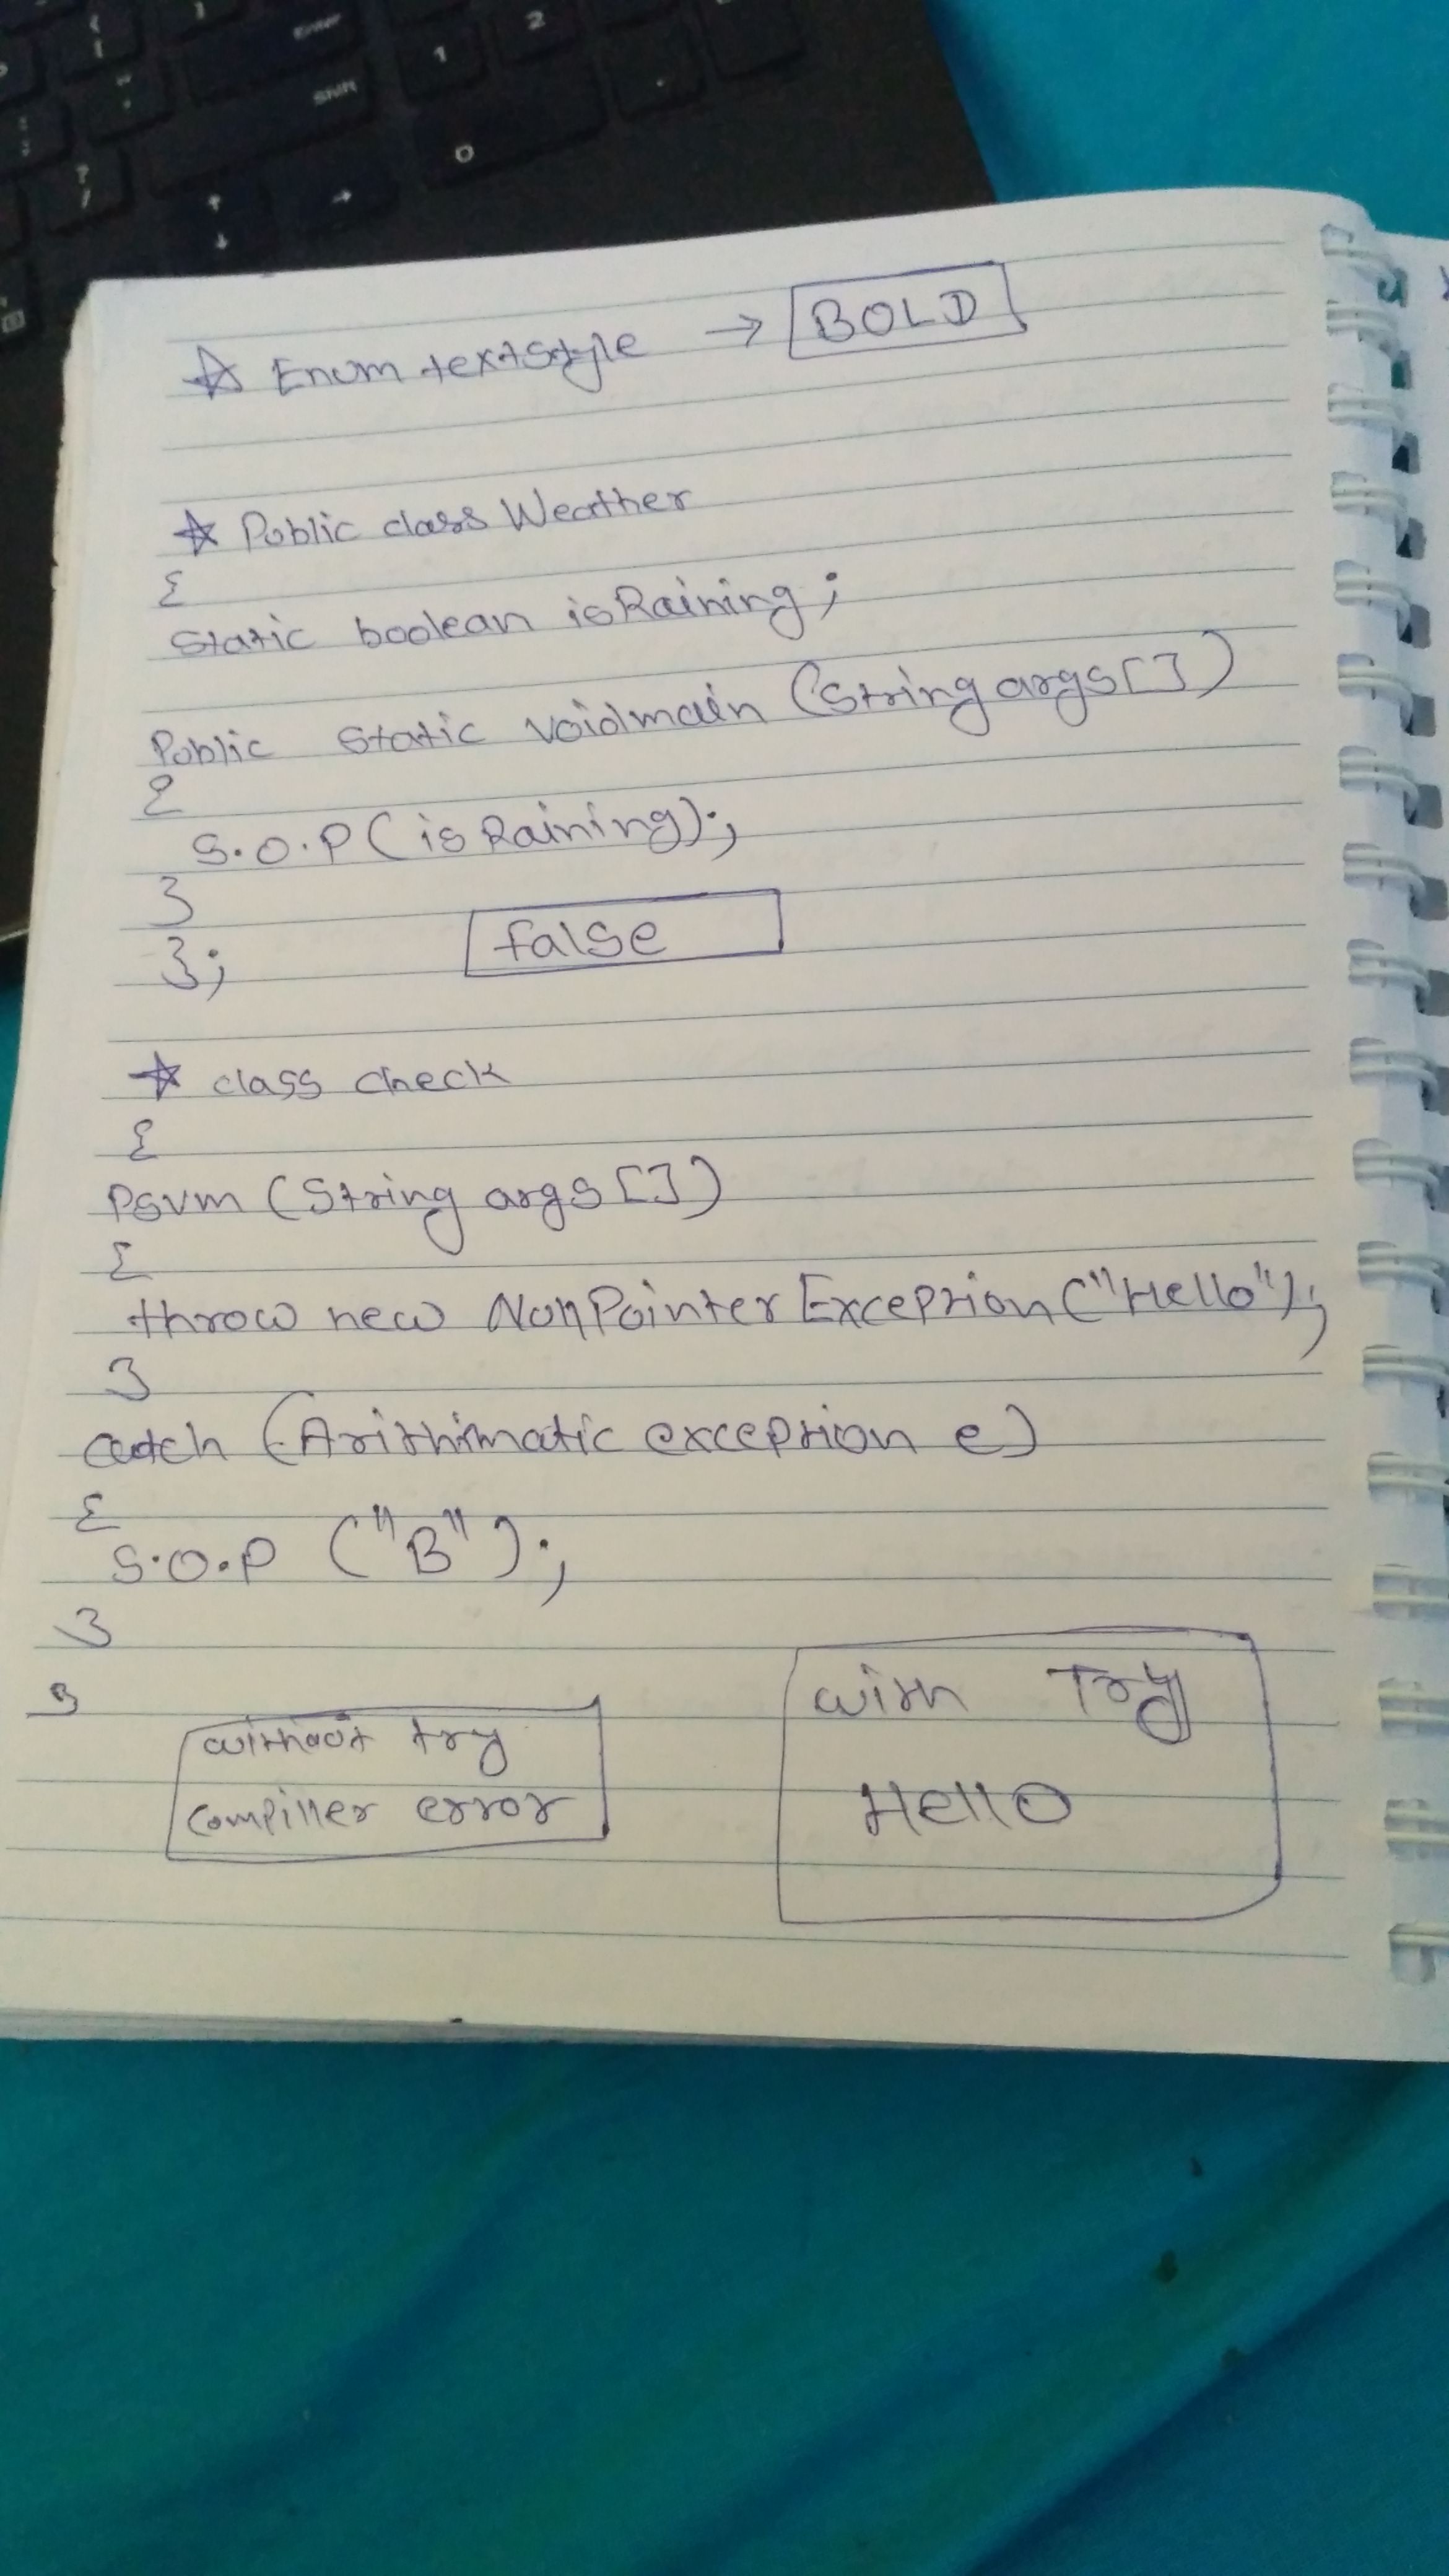 ☆ Enum textstyle → BOLD
☆ Public class Weather
{
Static boolean isRaining;
Public static voidmain (String args[])
{
S.O.P (isRaining);
}
};
false
☆ class check
{
Psvm (String args[])
{
throw new NonPointerException("Hello");
}
catch (Arithimatic exception e)
{
S.O.P ("B");
}
}
without try
compiller error
with Try
Hello